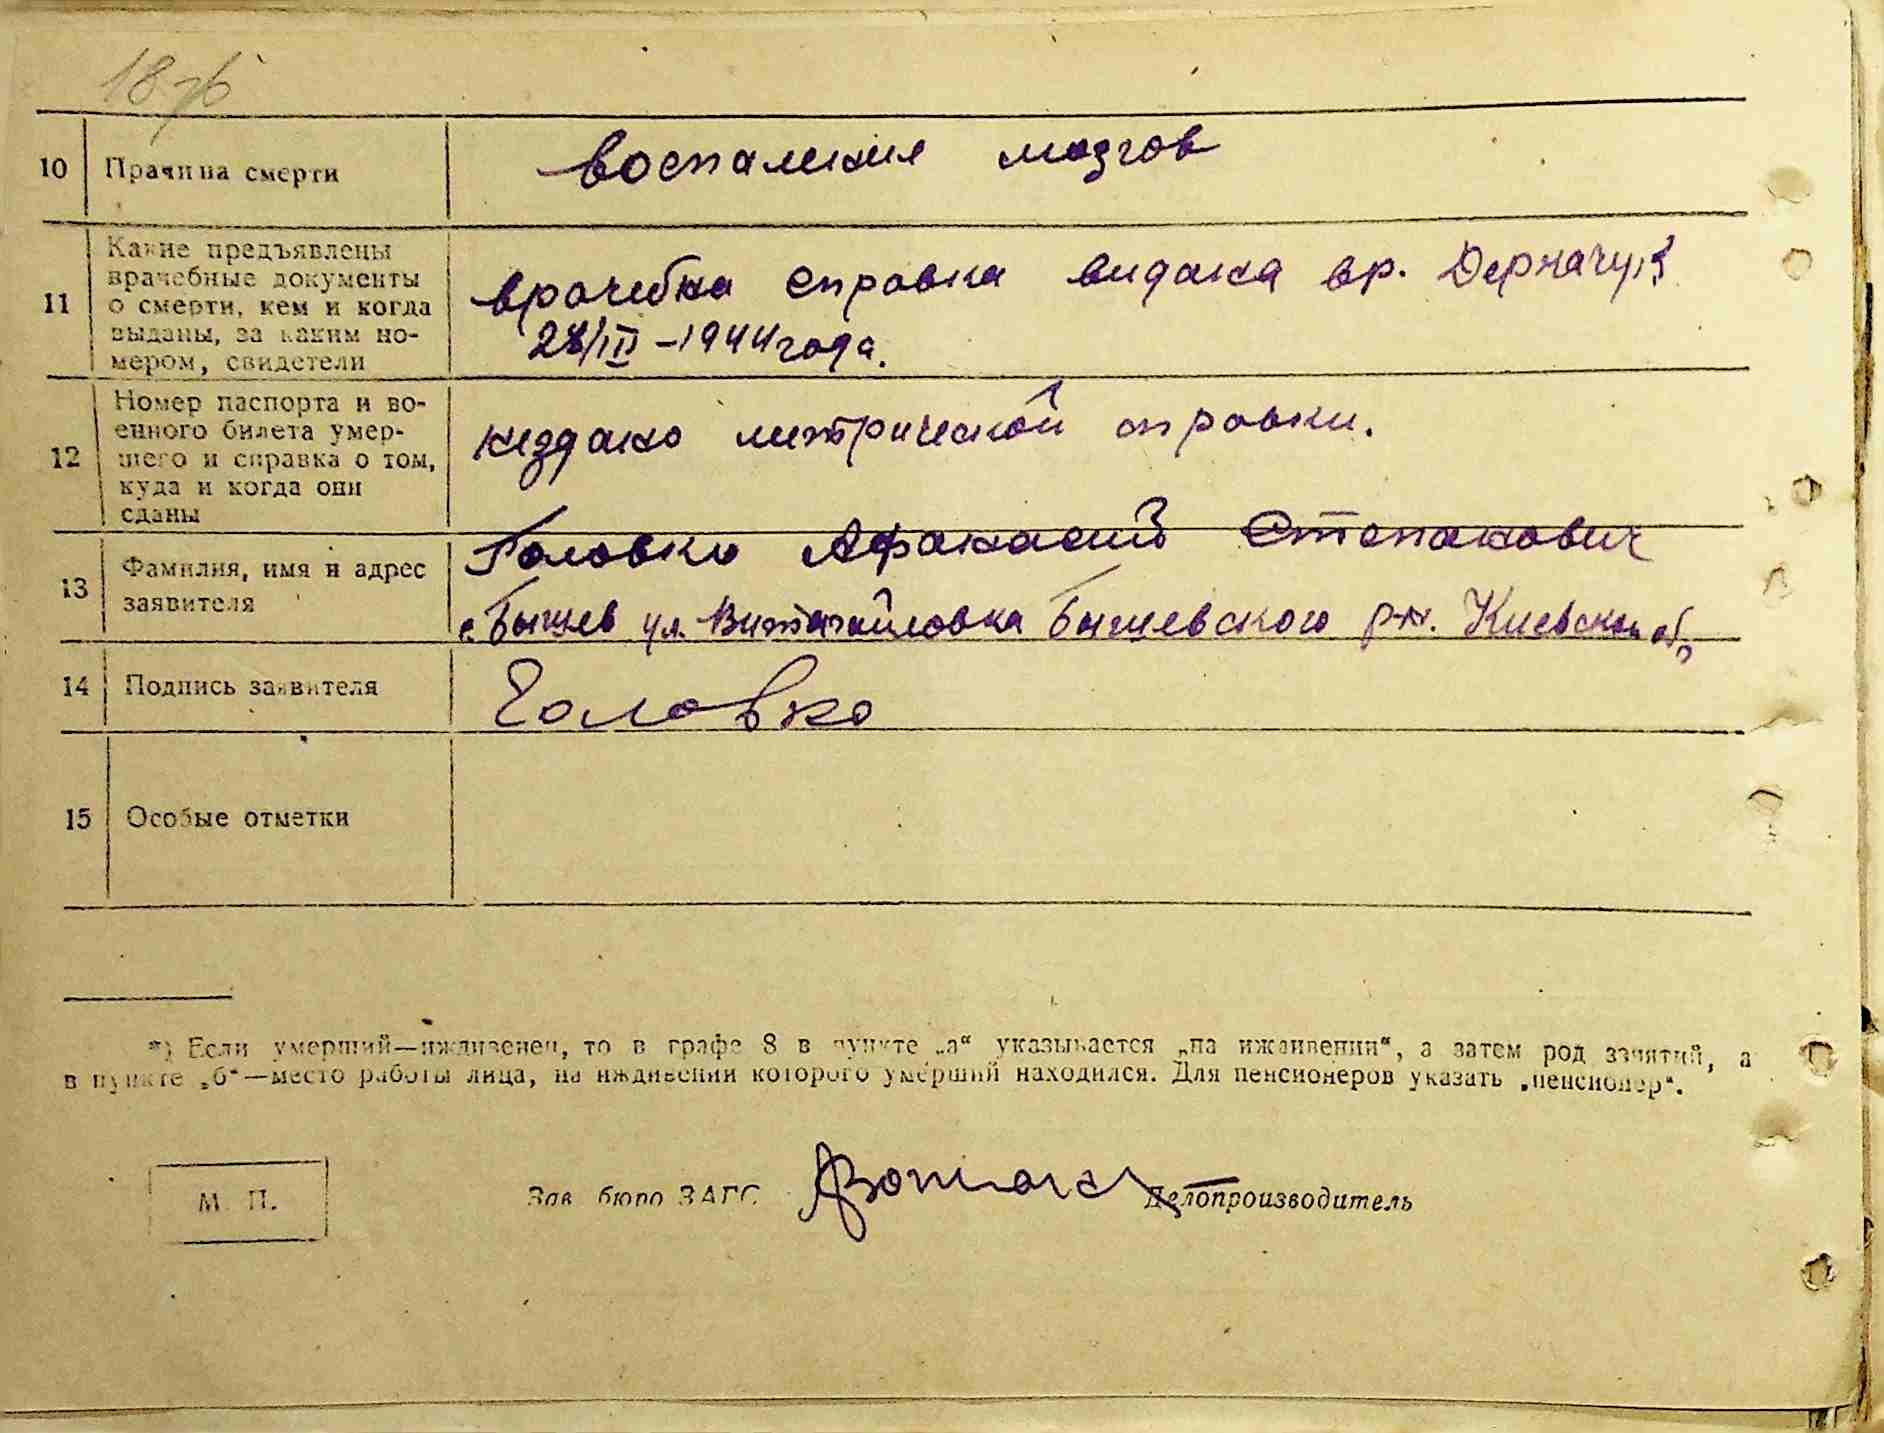 10 Причина смерти воспаления мозгов
11 Какие предъявлены
врачебные документы
о смерти, кем и когда
выданы, за каким но-
мером, свидетели
врачебна справка видана вр.
28/III -1944 года.
12 Номер паспорта и во-
енного билета умер-
шего и справка о том,
куда и когда они
сданы
нездано метрической справки.
13 Фамилия, имя и адрес
заявителя
Головко Афанасий Степанович
с. Бышев ул. Бышевского р-н. Киевской обл
14 Подпись заявителя Головко
15 Особые отметки
*) Если умерший—иждивенец, то в графе 8 в пункте „а“ указывается „на иждивении“, а затем род занятий, а
в пункте „б“—место работы лица, на иждивении которого умерший находился. Для пенсионеров указать „пенсионер“.
М. П. Зав. бюро ЗАГС Делопроизводитель